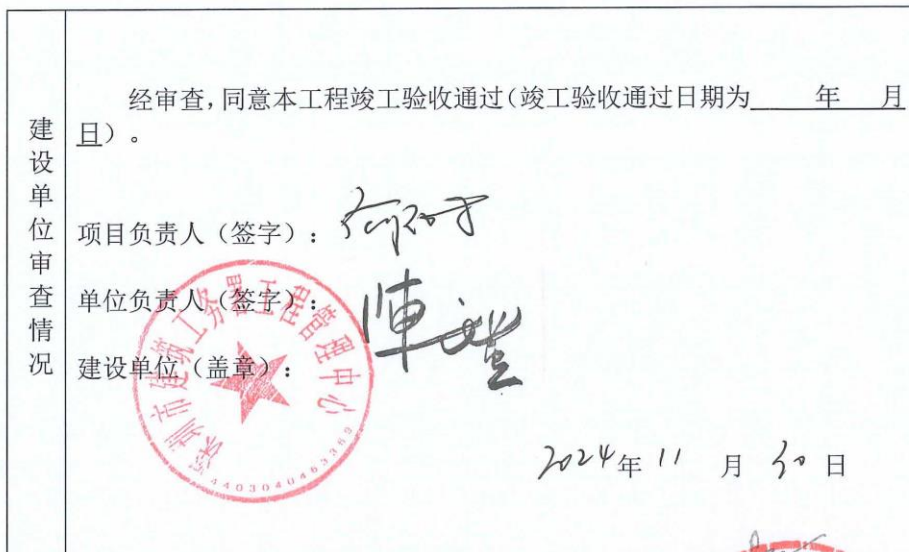 建设单位审查情况
经审查，同意本工程竣工验收通过（竣工验收通过日期为 年 月
日）。
项目负责人（签字）：
单位负责人（签字）：
建设单位（盖章）：
深圳市建筑工务署工程管理中心
4403040463369
2024年 11 月 30 日